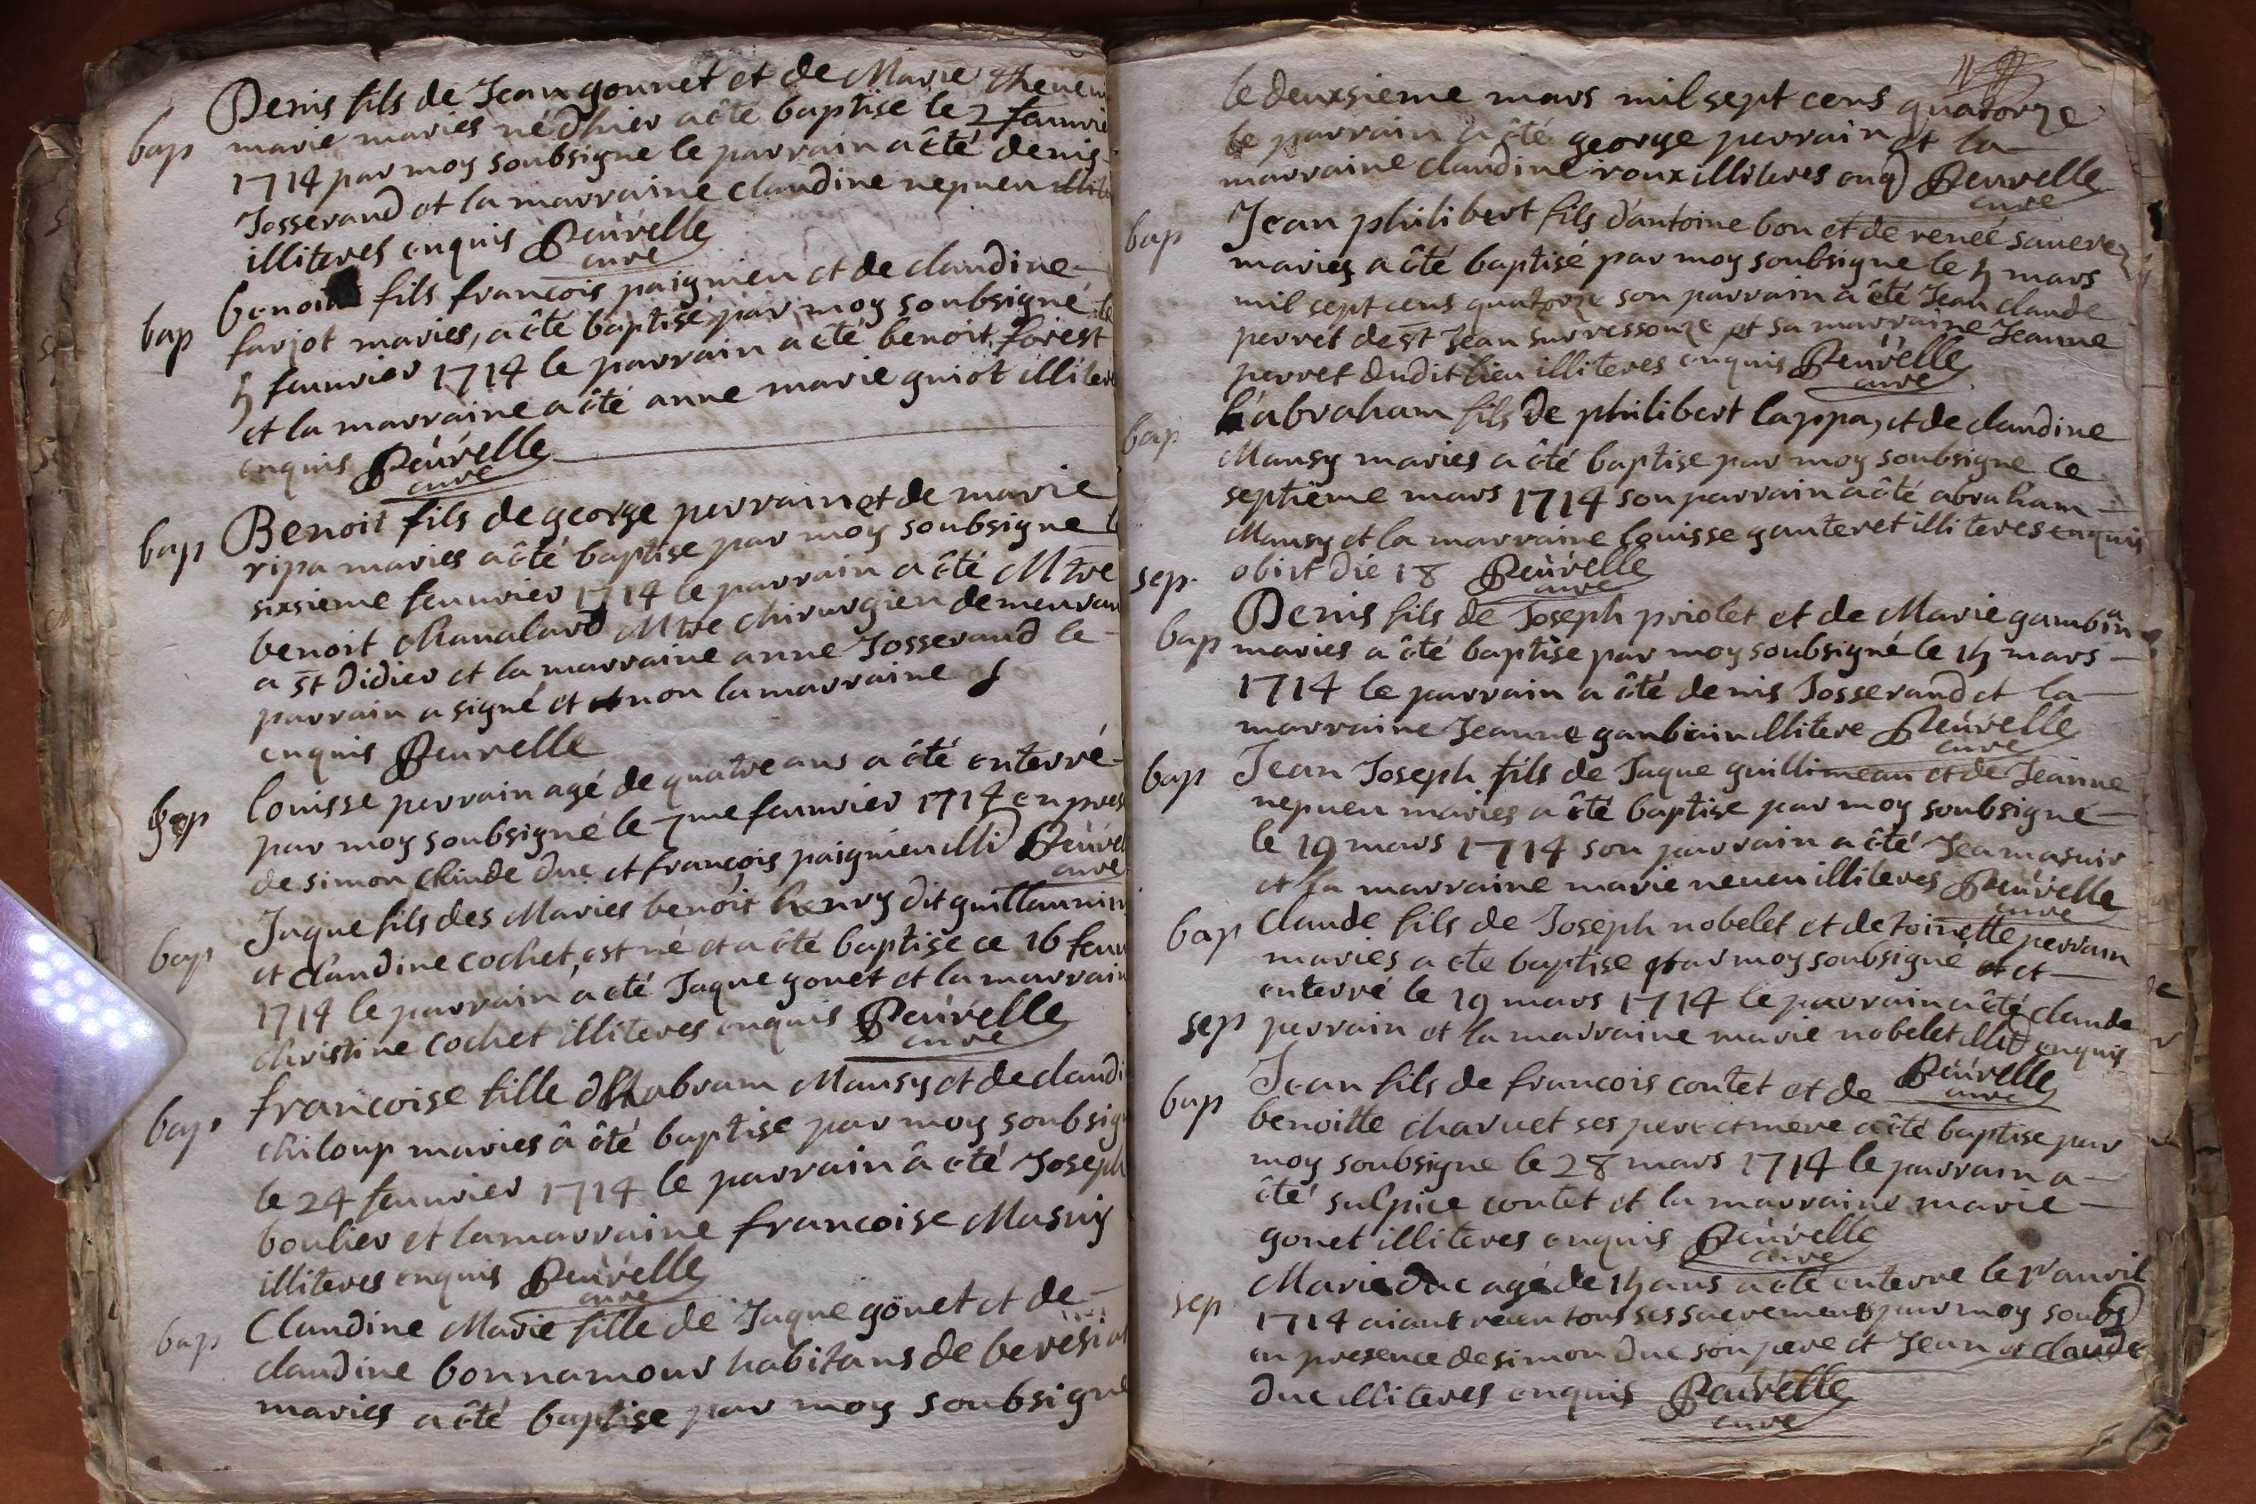 bap Denis fils de Jean gonnet et de Marie
marie maries né dhier a été baptise le 2 feuurie
1714 par moy soubsigne le parrain a été denis
Josserand et la marraine claudine nepueu
illiteres enquis Beúrelle
curé
bap benoit fils francois paignieu et de claudine
farjot maries, a été baptisé par moy soubsigné le
5 feuurier 1714 le parrain a été benoit forest
et la marraine a été anne marie guiot illitere
enquis Beúrelle
curé
bap Benoit fils de george perrain et de marie
ripa maries a été baptise par moy soubsigne l
sixsieme feuurier 1714 le parrain a été Mtre
benoit Chanalard Mtre chirurgien demeuran
a st Didier et la marraine anne Josserand le
parrain a signé et non la marraine
enquis Beurelle
sep louisse perrain agé de quatre ans a été enterré
par moy soubsigné le 7me feuurier 1714 en pres
de simon claude duc et françois paignieu illi Beúrel
curé
bap Jaque fils des Maries benoit henry dit guillaumin
et claudine cochet, est né et a été baptise ce 16 feuu
1714 le parrain a été Jaque gonet et la marrain
christine cochet illiteres enquis Beúrelle
curé
bap. francoise fille dhabram Mausy et de claudi
chiloup maries â été baptise par moy soubsig
le 24 feuurier 1714 le parrain â eté Joseph
boulier et la marraine francoise Masuy
illiteres enquis Beúrelle
curé
bap Claudine Marie fille de Jaque gonet et de
claudine bonnamour habitans de beresiat
maries a été baptise par moy soubsigne
le deuxsieme mars mil sept cens quatorze
le parrain a été george perrain et la
marraine claudine roux illiteres enq Beurelle
cure
bap Jean philibert fils d'antoine bon et de reneé
maries a été baptisé par moy soubsigne le 5 mars
mil sept cens quatorze son parrain a été Jean claude
perret de st Jean surressouze et sa marraine Jeanne
perret dudit lieu illiteres enquis Beúrelle
cure
bap abraham fils de philibert lappa, et de claudine
Mausy maries a été baptise par moy soubsigne le
septieme mars 1714 son parrain a été abraham
Mausy et la marraine louisse gauteret illiteres enquis
sep. obiit die 18 Beúrelle
cure
bap Denis fils de Joseph priolet et de Marie gambin
maries a été baptise par moy soubsigné le 15 mars
1714 le parrain a été denis Josserand et la
marraine Jeanne gambiain illitere Beúrelle
cure
bap Jean Joseph fils de Jaque guillimeau et de Jeanne
nepueu maries a été baptise par moy soubsigne
le 19 mars 1714 son parrain a été Jea masuir
et la marraine marie neueu illiteres Beúrelle
cure
bap Claude fils de Joseph nobelet et de toinette perrain
maries a ete baptise par moy soubsigne et
enterré le 19 mars 1714 le parrain a été claude
sep perrain et la marraine marie nobelet illit enquis
Beúrelle
cure
bap Jean fils de francois contet et de
benoitte charuet ses pere et mere a été baptise par
moy soubsigne le 28 mars 1714 le parrain a
été sulpice contet et la marraine marie
gonet illiteres enquis Beúrelle
cure
sep Marie duc agé de 15 ans a eté enterre le pr auril
1714 aiant receu tous ses sacrements par moy soubs
en presence de simon duc son pere et Jean et claude
duc illiteres enquis Beúrelle
cure